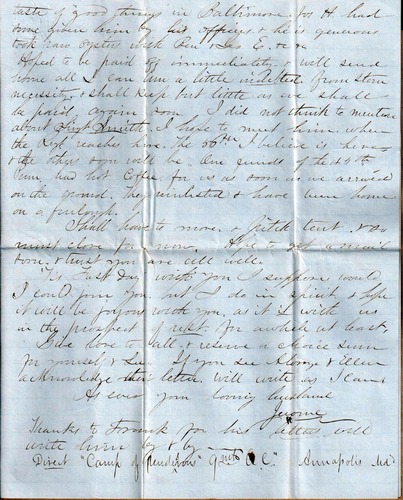 taste of good things in Baltimore. for H. had
some given him by his officers & he is generous
took raw oysters with Gen &
Hoped to be paid off immediately & will send
home all I can am a little indebted from stern
necessity & shall keep but little as we shall
be paid again soon. I did not think to mention
about Smith. I hope to meet him when
the Regt reaches here. the 56th I believe is here
& the others soon will be. Our friends of the
had hot Coffee for us as soon as we arrived
on the ground. They reinlisted & have been home
on a furlough.
Shall have to move & pitch tent &
must close for now. Hope to get a mail
soon. & trust you are all well.
Tis Fast Day with you I suppose would
I could join you. but I do in spirit & hope
it will be joyous with you, as it is with us
in the prospect of rest. for awhile at least.
Give love to all & reserve a choice sum
for yourself & If you see George & Ellen
acknowledge their letter. will write as I can
As ever your loving husband
Jerome
Thanks to Frank for his letter will
write him by & by
Direct "Camp of Rendezvous" 9 A.C." Annapolis Md